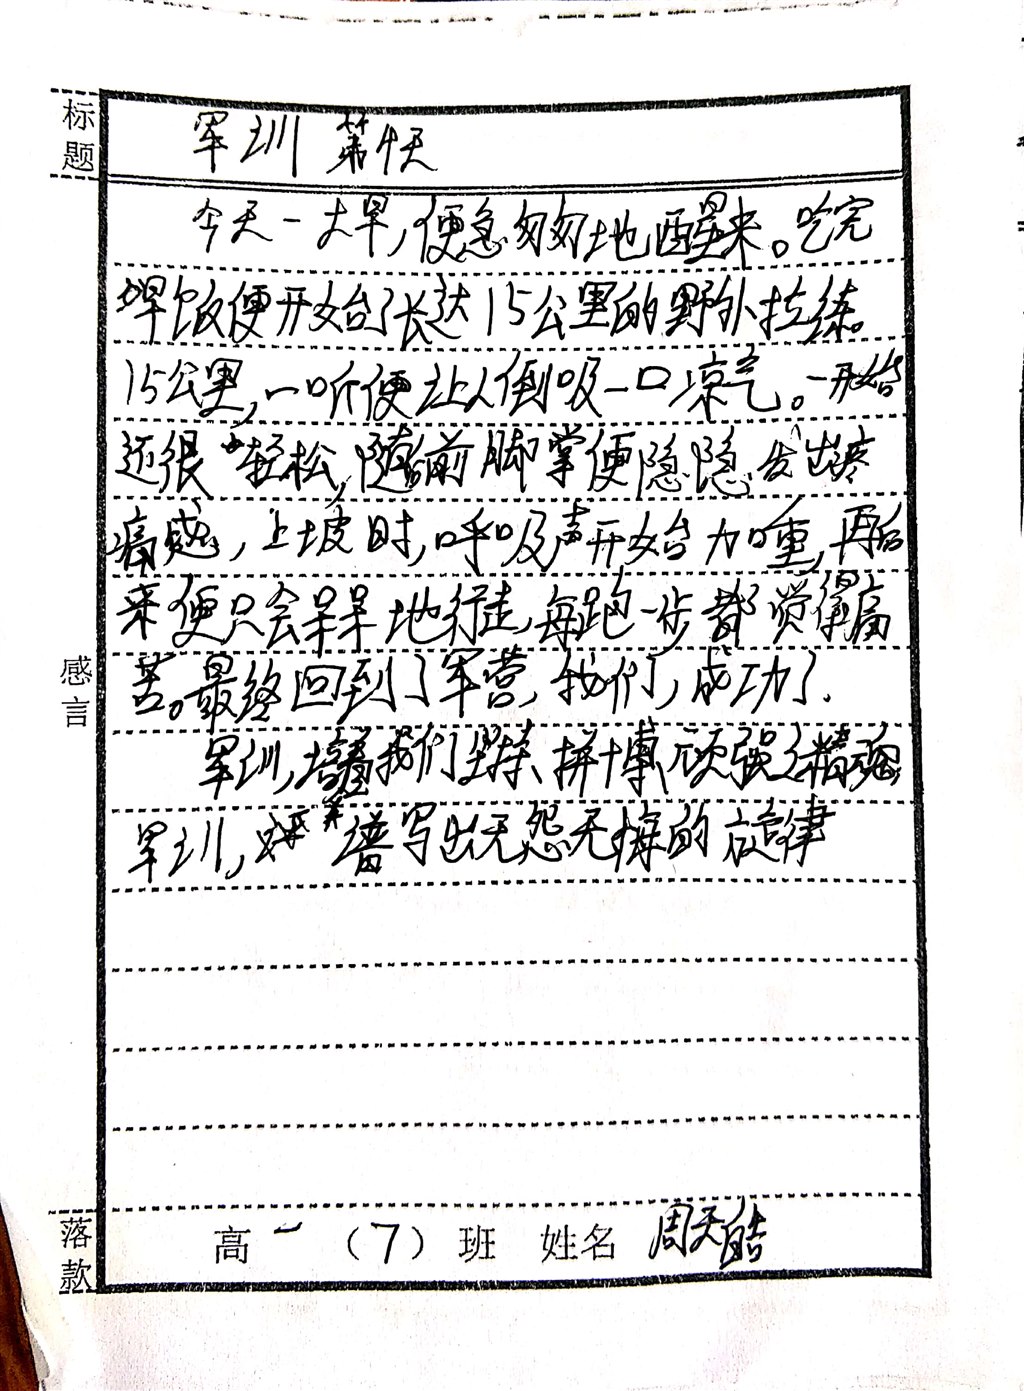 标题
军训 第4天
今天一大早,便急匆匆地醒来。吃完
早饭便开始了长达15公里的野外拉练。
15公里,一听便让人倒吸一口凉气。一开始
还很轻松,随前脚掌便隐隐发出疼
痛感,上坡时,呼吸声开始加重,再后
来便只会呆呆地行走,每跑一步都觉得痛
苦。最终回到了军营,我们,成功了.
感言
军训,培养我们坚持、拼搏、顽强之精魂
军训,谱写出无怨无悔的旋律
落款
高一(7)班 姓名 周天皓